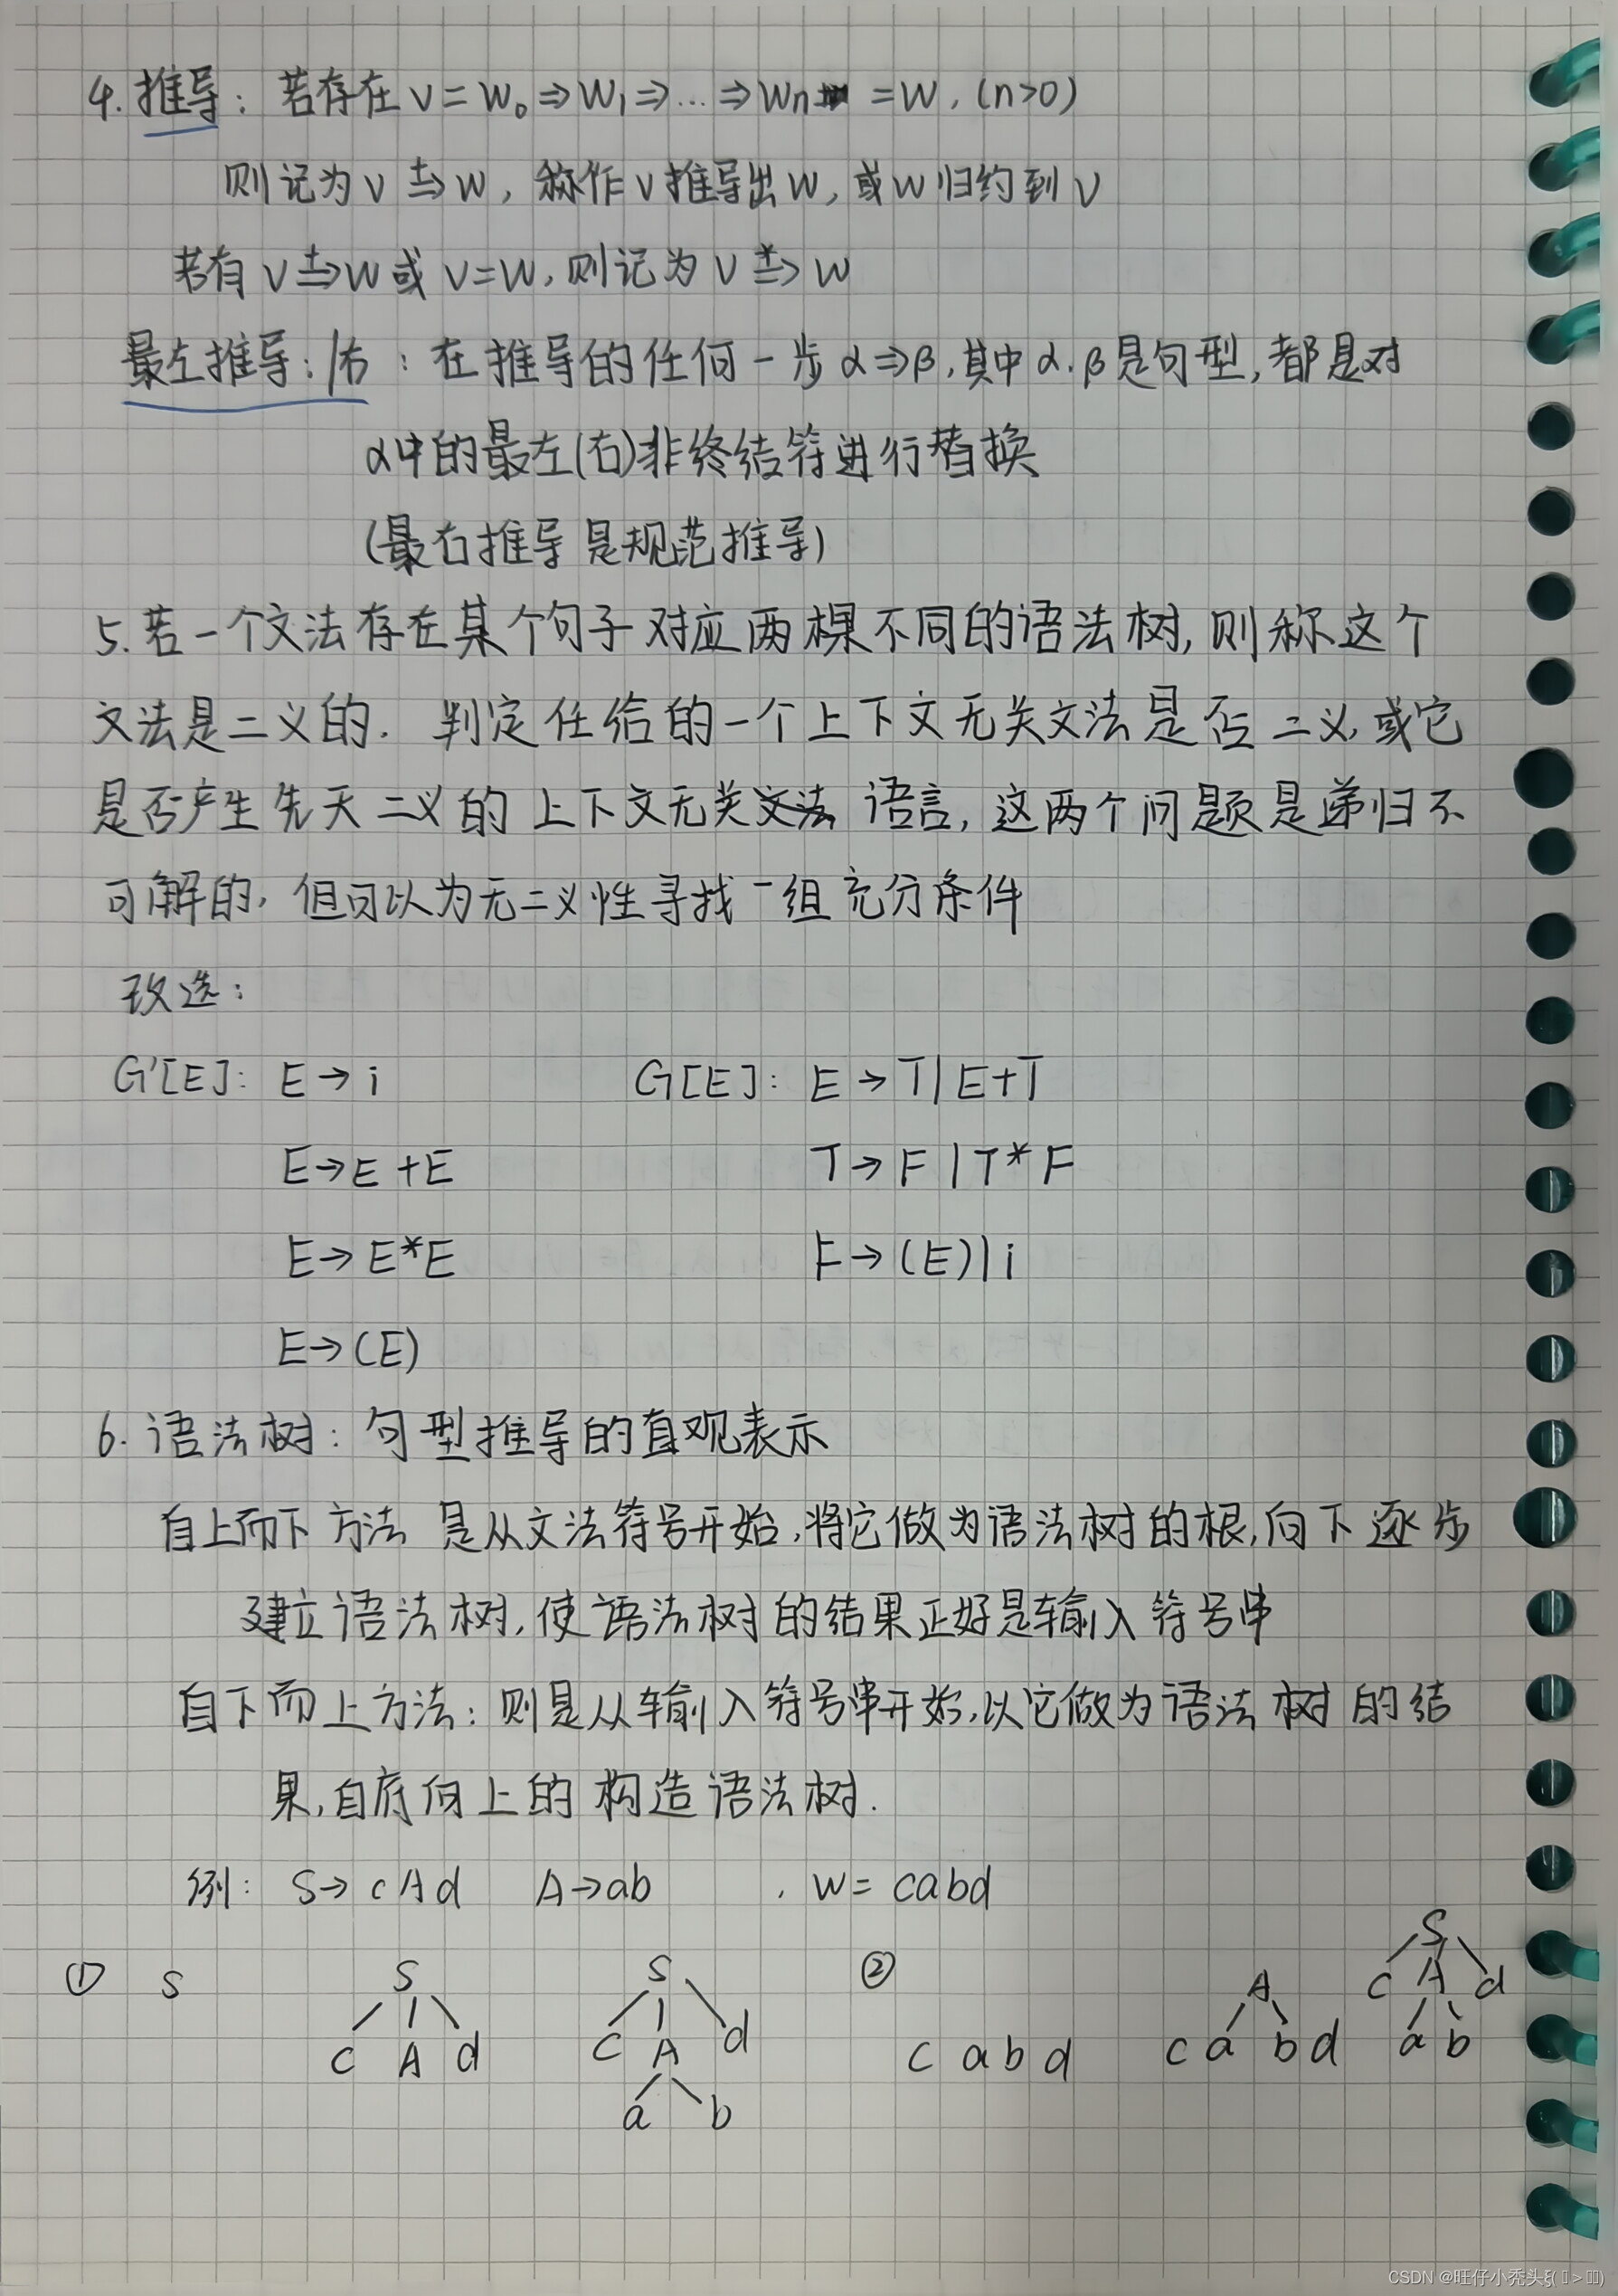 4. 推导: 若存在 v = w₀ ⇒ w₁ ⇒ … ⇒ wn = w, (n>0)
则记为 v ⁺⇒ w, 称作 v 推导出 w, 或 w 归约到 v
若有 v ⁺⇒ w 或 v=w, 则记为 v *⇒ w
最左推导: /右 : 在推导的任何一步 α⇒β, 其中 α.β是句型, 都是对
α中的最左(右)非终结符进行替换
(最右推导是规范推导)
5. 若一个文法存在某个句子对应两棵不同的语法树, 则称这个
文法是二义的. 判定任给的一个上下文无关文法是否二义, 或它
是否产生先天二义的上下文无关语言, 这两个问题是递归不
可解的, 但可以为无二义性寻找一组充分条件
改造:
G'[E]: E→i G[E]: E→T|E+T
E→E+E T→F|T*F
E→E*E F→(E)|i
E→(E)
6. 语法树: 句型推导的直观表示
自上而下方法 是从文法符号开始, 将它做为语法树的根, 向下逐步
建立语法树, 使语法树的结果正好是输入符号串
自下而上方法: 则是从输入符号串开始, 以它做为语法树的结
果, 自底向上的构造语法树.
例: S→cAd A→ab , w= cabd
① S
S
c A d
S
c A d
a b
②
c a b d
A
c a b d
S
c A d
a b
CSDN @旺仔小秃头